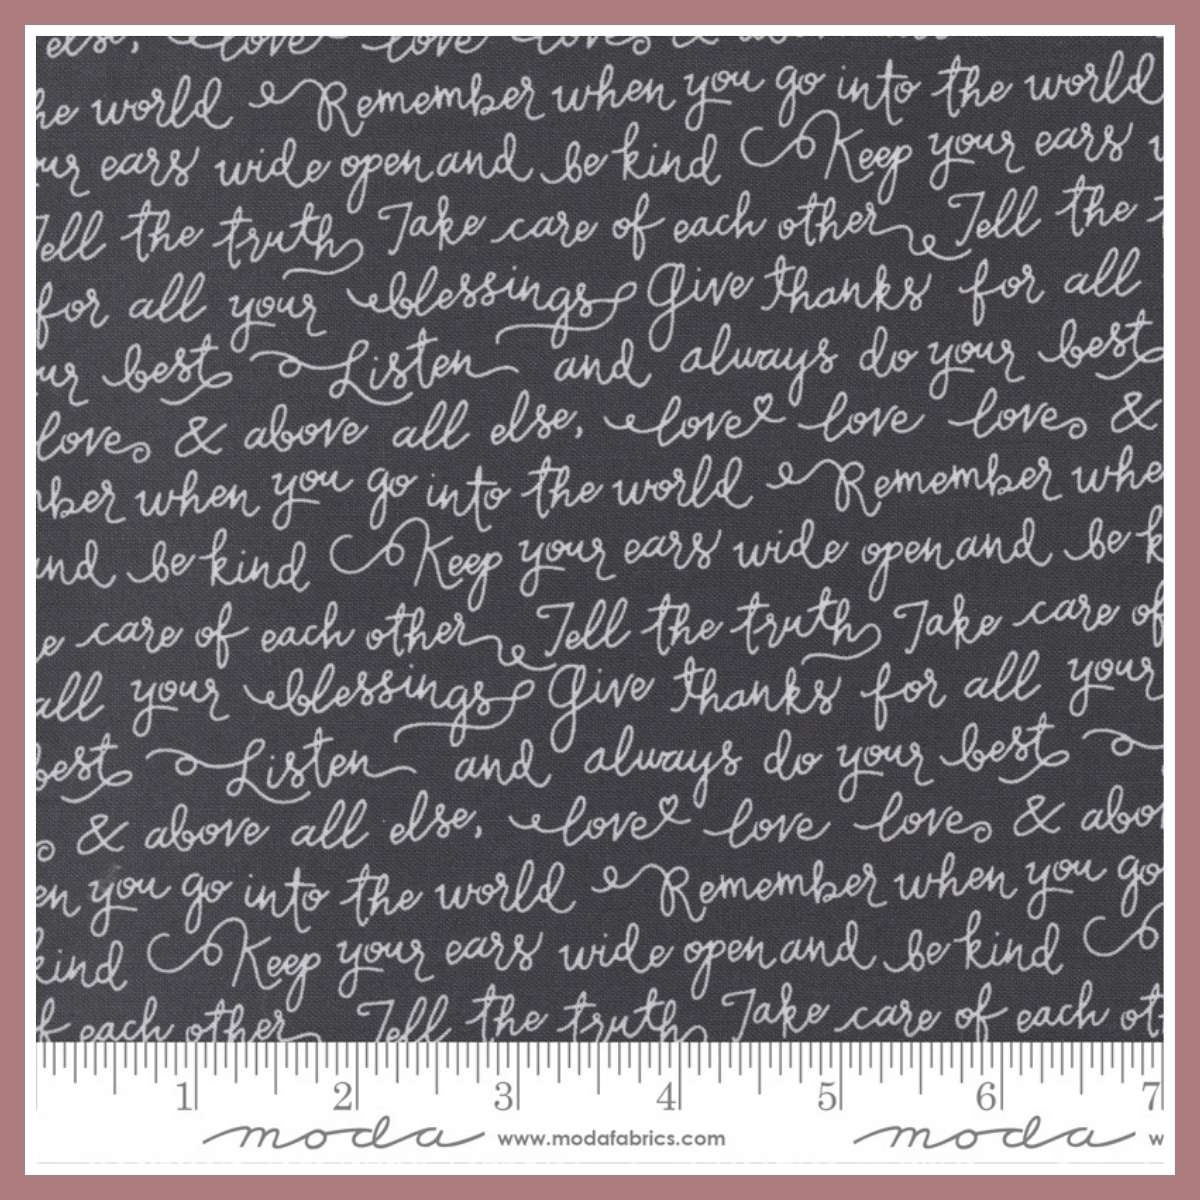 else, love love love & above all
he world Remember when you go into the world
ur ears wide open and be kind Keep your ears
Tell the truth Take care of each other Tell the
for all your blessings Give thanks for all
ur best Listen and always do your best
love & above all else, love love love &
ber when you go into the world Remember whe
nd be kind Keep your ears wide open and be k
e care of each other Tell the truth Take care of
all your blessings Give thanks for all your
best Listen and always do your best
& above all else, love love love & abov
en you go into the world Remember when you go
kind Keep your ears wide open and be kind
f each other Tell the truth Take care of each ot
1 2 3 4 5 6 7
moda www.modafabrics.com moda w